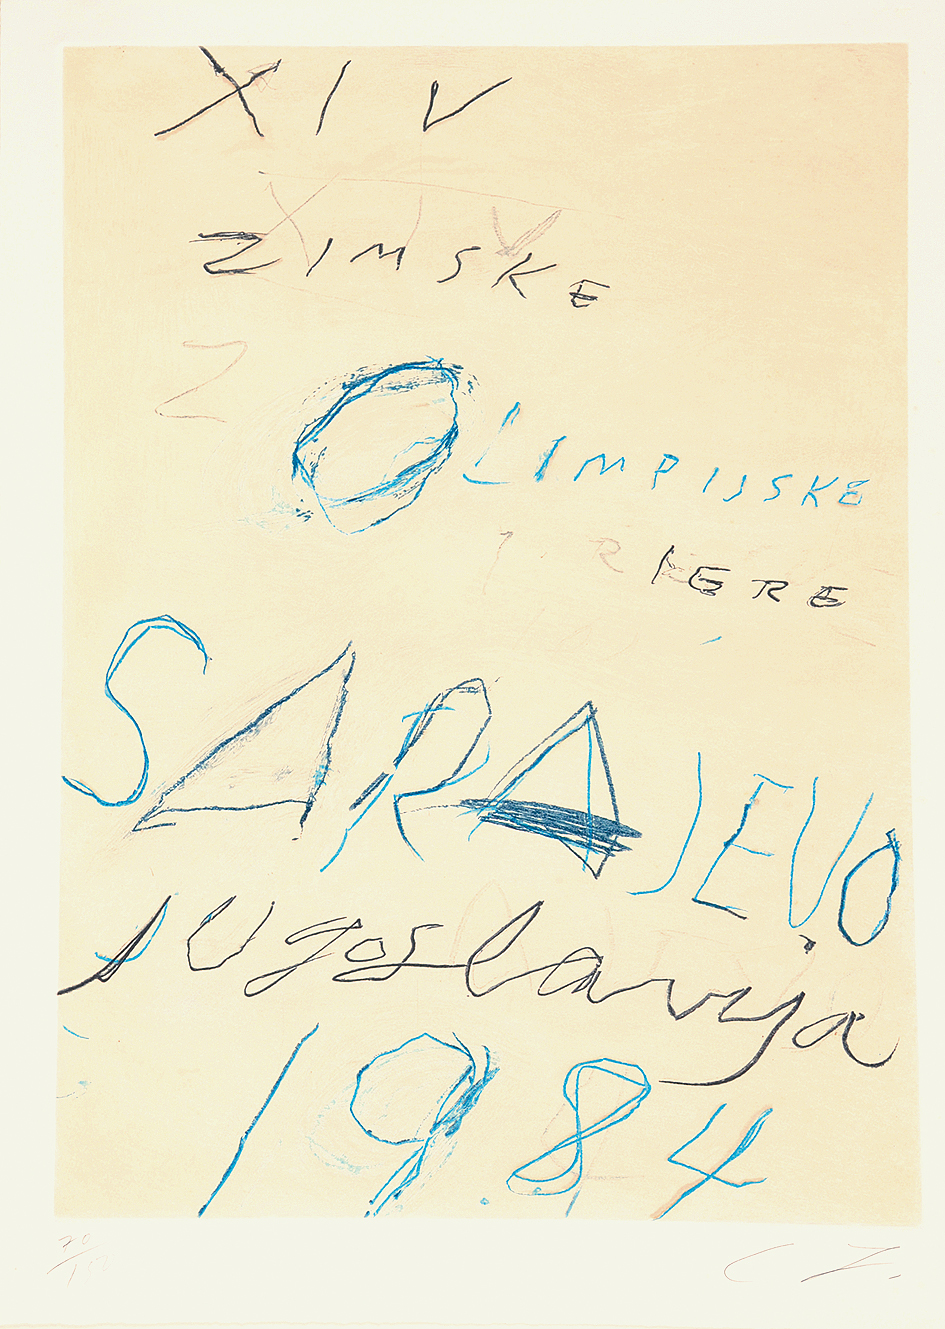 XIV
ZIMSKE
Z OLIMPIJSKE
IERE
SARAJEVO
Jugoslavija
19.84
70/150